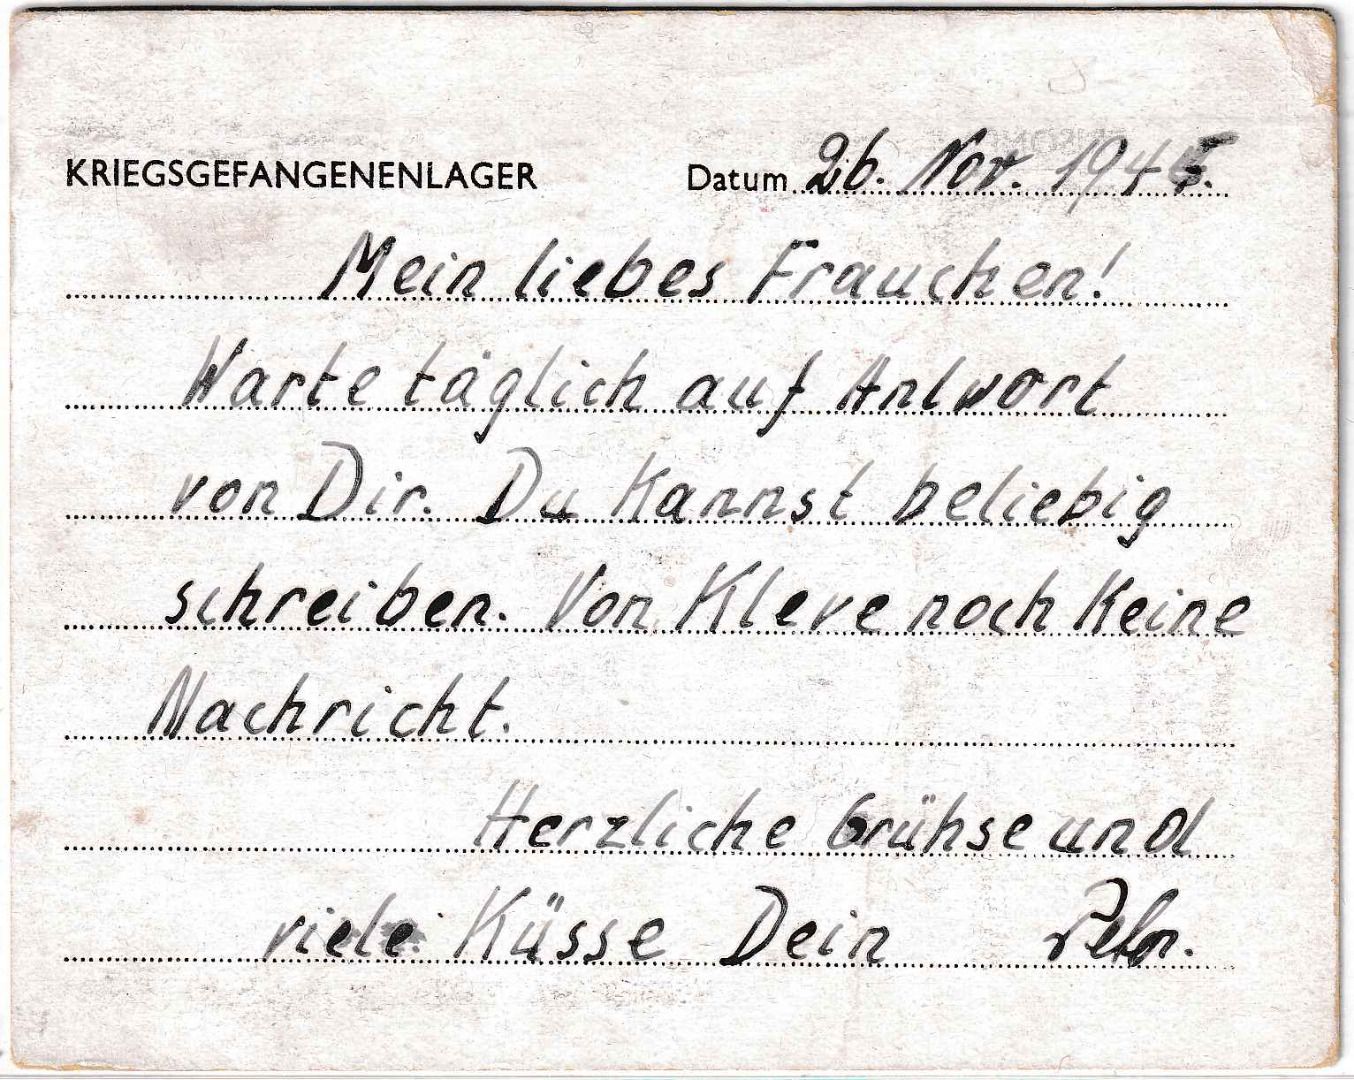 KRIEGSGEFANGENENLAGER Datum 26. Nov. 1945.
Mein liebes Frauchen!
Warte täglich auf Antwort
von Dir. Du kannst beliebig
schreiben. Von Kleve noch keine
Nachricht.
Herzliche Grühse und
viele Küsse Dein Peter.